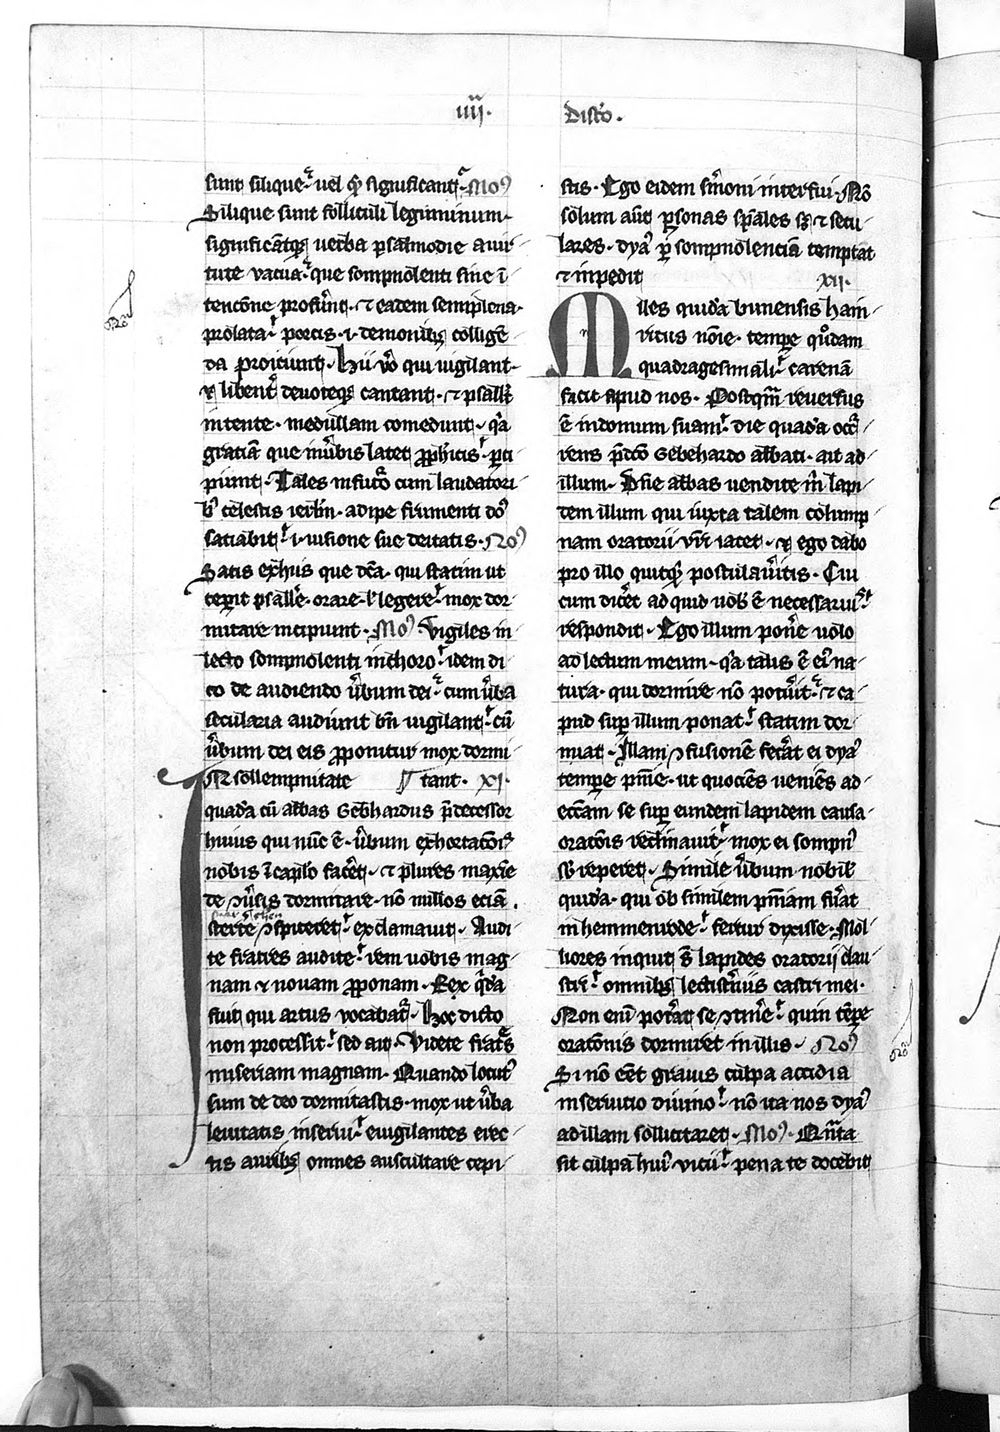 iiij.
Disto.
sunt silique. uel qͥd significant. Mo᷒
Silique sunt follituli leguminum.
significantqꝫ uerba psalmodie avir
tute vacua. que sompnolenti sine ī
tencōne proferūt. ⁊ eadem semiplena
prolata. porcis .i. demonibꝫ colligē
da proiciunt. Hii vͦo qui uigilant
⁊ libent᷑ deuoteqꝫ cantant. ⁊ psallūt
intente. medullam comedunt. qͥa
gratiā que in v̾bis latet ꝓphiticis. ꝑci
piunt. Tales in fut᷑o cum laudatori
bꝰ celestis ierlm̄. adipe frumenti dn̄s
satiabit. .i. uisione sue deitatis. No᷒
Satis exhͥs que dc̄a. qui statim ut
ceperit psall̾e. orare. l̾ legere. mox dor
mitare incipiunt. Mo᷒. Vigiles in
lecto sompnolenti in choro. idem di
co de audiendo v̾bum dei. cum v̾ba
secularia audiunt bn̄ uigilant. cū
v̾bum dei eis ꝓponitur mox dormi
IN sollempnitate ¶ tant. XI.
quadā cū abbas Gebhardus p̄decessor
huius qui nūc ē. v̾bum exhortacōis
nobis ī capl̾o facēt. ⁊ plures maxīe
de ꝯu̾sis dormitare. nō nullos eciā
stertere ꝯspiceret. exclamauit. Audi
te fratres audite. rem uobis mag
nam ⁊ nouam ꝓponam. Rex qͥdā
fuit qui artus vocabat᷑. Hoc dicto
non processit. sed ait. Videte frat᷑s
miseriam magnam. Quando locut᷒
sum de deo dormitastis. mox ut v̾ba
leuitatis inserui. euigilantes erec
tis auribꝫ omnes auscultare cepi
stis. Ego eidem sm̄oni interfui. Nō
solum aūt ꝑsonas sp̄ales sꝫ ⁊ secu
lares. dyaꝰ ꝑ sompnolenciā temptat
⁊ inpedit XII.
Miles quidā bunensis hein
ricus nōie. tempore quodam
quadragesimali. carenā
facit apud nos. Postqm̄ reuersus
ē indomum suam. die quadā occ᷑
rens p̄dc̄o Gebehardo abbati. ait ad
illum. Dn̄e abbas uendite mͥ lapi
dem illum qui iuxta talem colump
nam oratorii vr̄i iacet. ⁊ ego dabo
pro illo quitqͥd postulau̾itis. Cui
cum dicēt ad quid uobꝭ ē necessariū.
respondit. Ego illum pon̾e uolo
ad lectum meum. qͥa talis ē ei᷒ na
tura. qui dormire nō potu̾it. ⁊ ca
pud suꝑ illum ponat. statim dor
miat. Illam ꝯfusionē fec̾at ei dyaꝰ
tempore pn̄ie. ut quociēs ueniēs ad
ecc̄iam se suꝑ eundem lapidem causa
oratōis reclinauit. mox ei sompn᷒
sb̾reperet. Simile v̾bum nobil̾
quidā. qui ob similem pn̄iam fu̾at
in hemmenrode. fertur dixisse. Mol
liores inquit sūt lapides oratorij clau
stri. omnibꝫ lectist̾niis castri mei.
Non enī pot̾at se ꝯtin̾e. quin tēpore
oratōnis dormiret in illis. No᷒
Si nō eēt grauis culpa accidia
in seruitio diuino. nō ita nos dyaꝰ
ad illam sollicitaret. Mo᷒. Qn̄ta
sit culpa hui᷒ vicii. pena te docebit